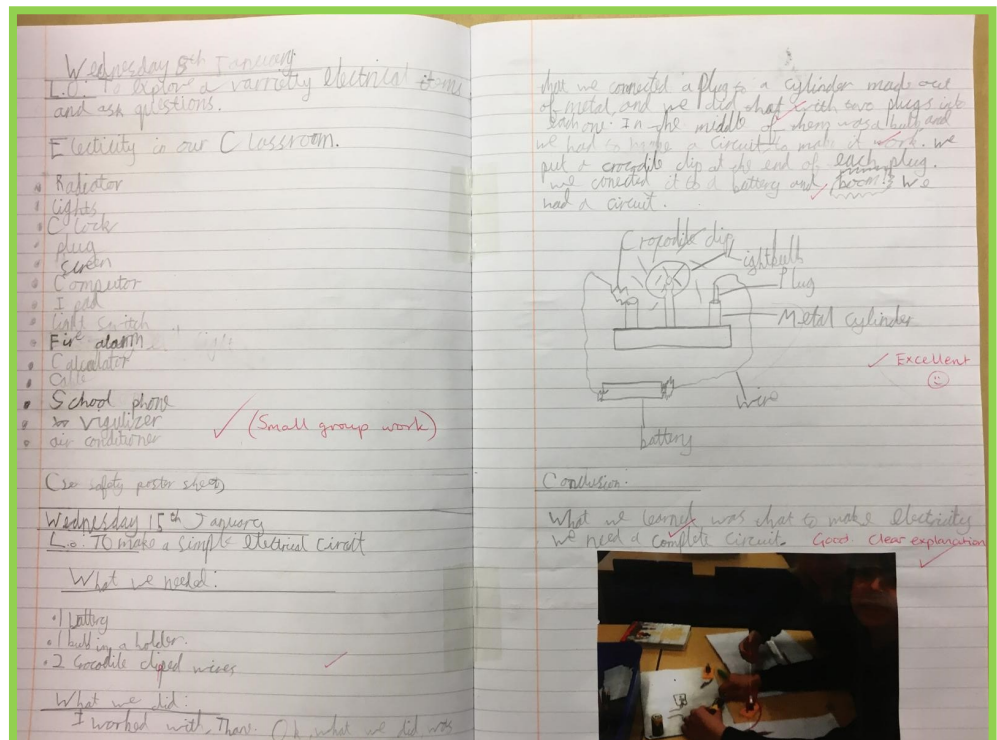 Wednesday 8th January
L.O. To explore a varrietly electrical items
and ask questions.
Electicity in our Classroom.
Radiator
lights
Clock
plug
screen
Computor
I pad
light switch
Fire alarm
Calculator
School phone
vigulizer
air conditioner
(Small group work)
(see safety poster sheet)
Wednesday 15th January
L.o. To make a simple electrical circuit
What we needed:
1 battery
1 bulb in a holder.
2 Crocodile cliped wires
What we did:
I worked with. Oh what we did was
that we connected a plug to a cylinder made out
of metal, and we did that with two plugs into
each one. In the middle of them was a bulb, and
we had to have a circuit to make it work. we
put a crocodile clip at the end of each plug.
we conected it to a battery and boom!! We
had a circuit.
Crocodile clip
Lightbulb
Plug
Metal cylinder
Excellent
Wire
battery
Conclusion.
What we learned was that to make electricity
we need a complete circuit. Good. Clear explanation